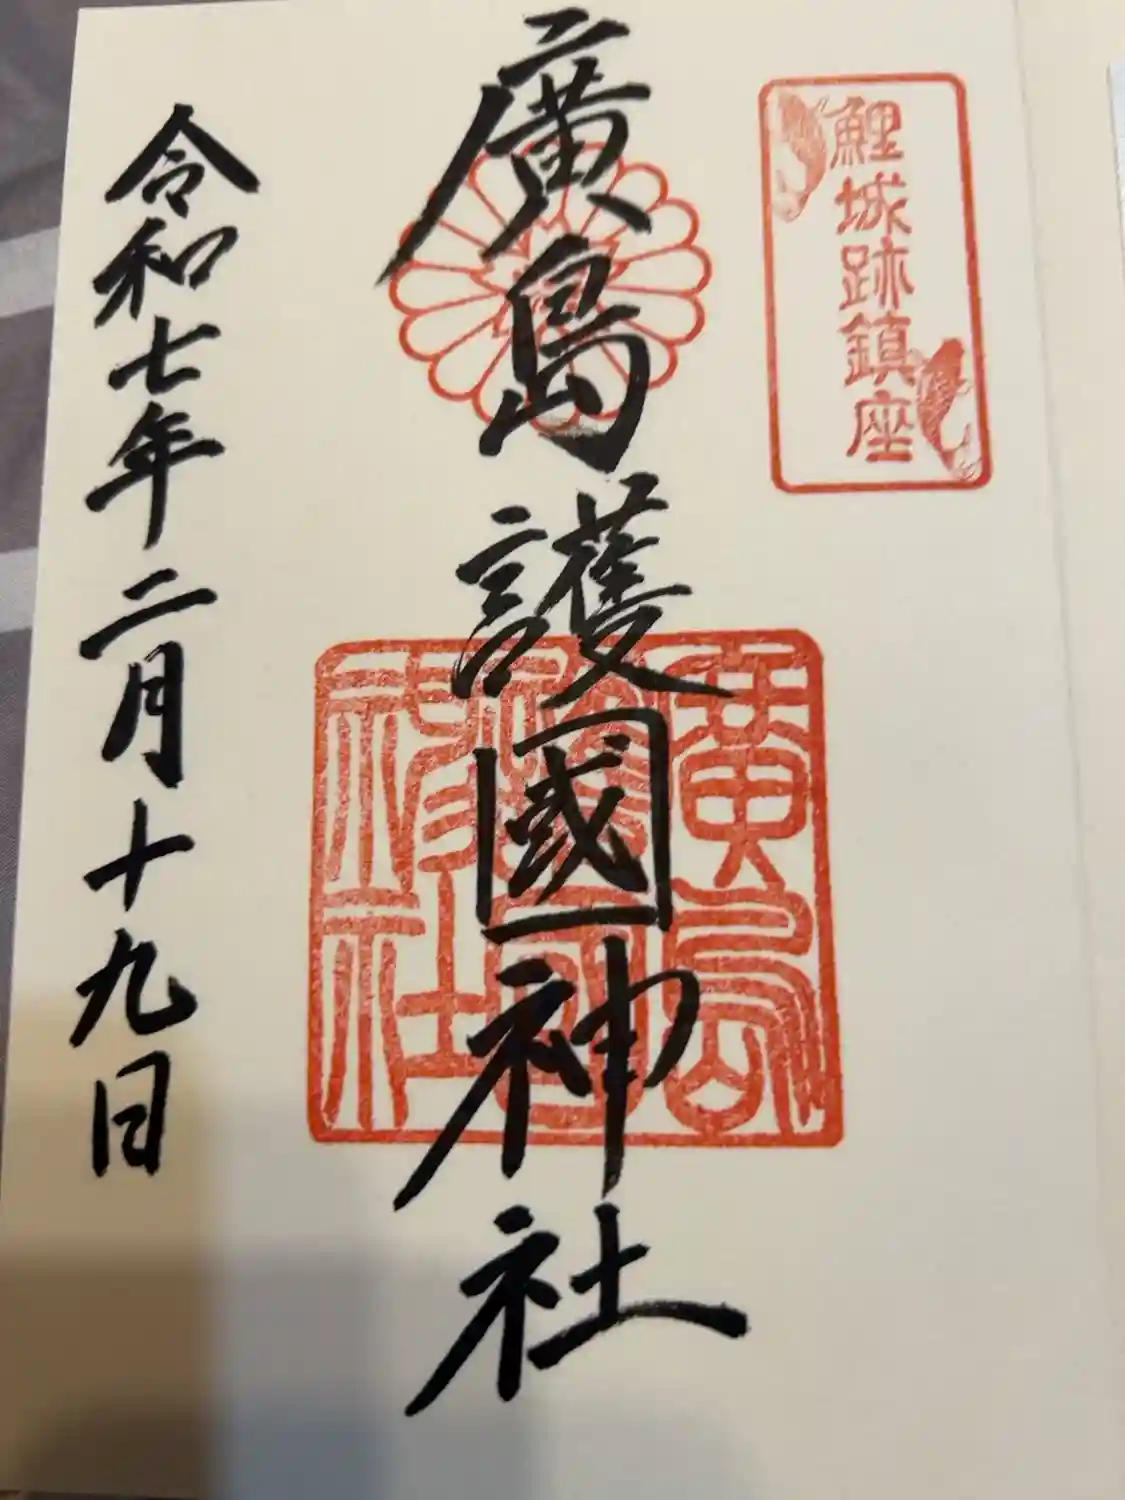 鯉城跡鎮座
廣島護國神社
廣島護國神社
令和七年二月十九日